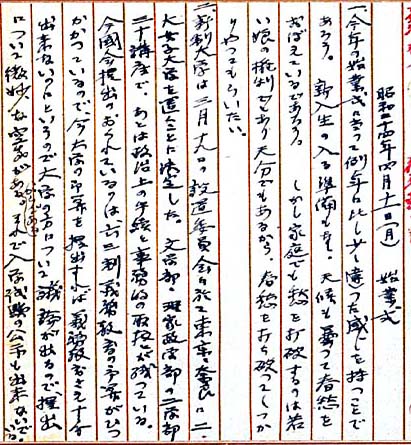 昭和二十四年四月十一日(月) 始業式
一、今年の始業式に当って例年に比し少し違った感じを持つことで
あろう。 新入生の入る準備もなく、天候も曇って春愁を
おぼえているであろう。 しかし家庭でも愁を打破するのは若
い娘の役割でもあり天分でもあるから、春愁を打ち破ってしっか
りやってもらいたい。
二、新制大学は三月十九日の設置委員会に於て東京・奈良に二
大女子大学を置くことに決定した。文学部・理家政学部の二学部
二十講座で、あとは政治上の手続と事務的の取扱とが残っている。
今国会提出がおくれているのは六・三制義務教育の予算がひっ
かかっているので、今大学の予算を提出すれば義務教育さえ
出来ないのにというので大学の方について議論が出るので提出
について微妙な空気がある。それで入学試験の公示も出来ないでいる。